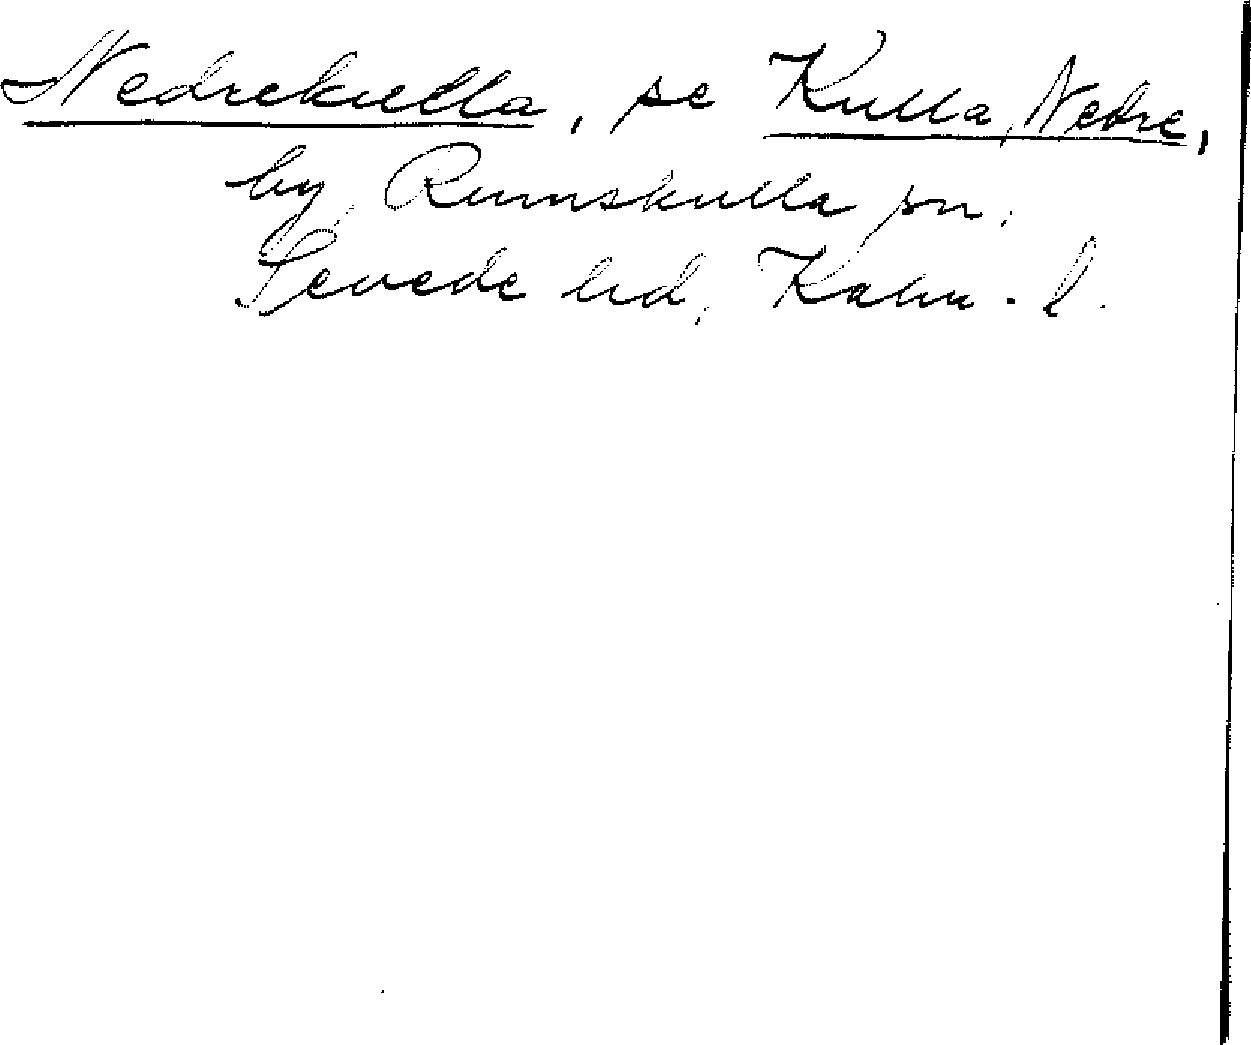 Nedrekulla, se Kulla, Nedre,
by, Rumskulla sn,
Sevede hd, Kalm. l.